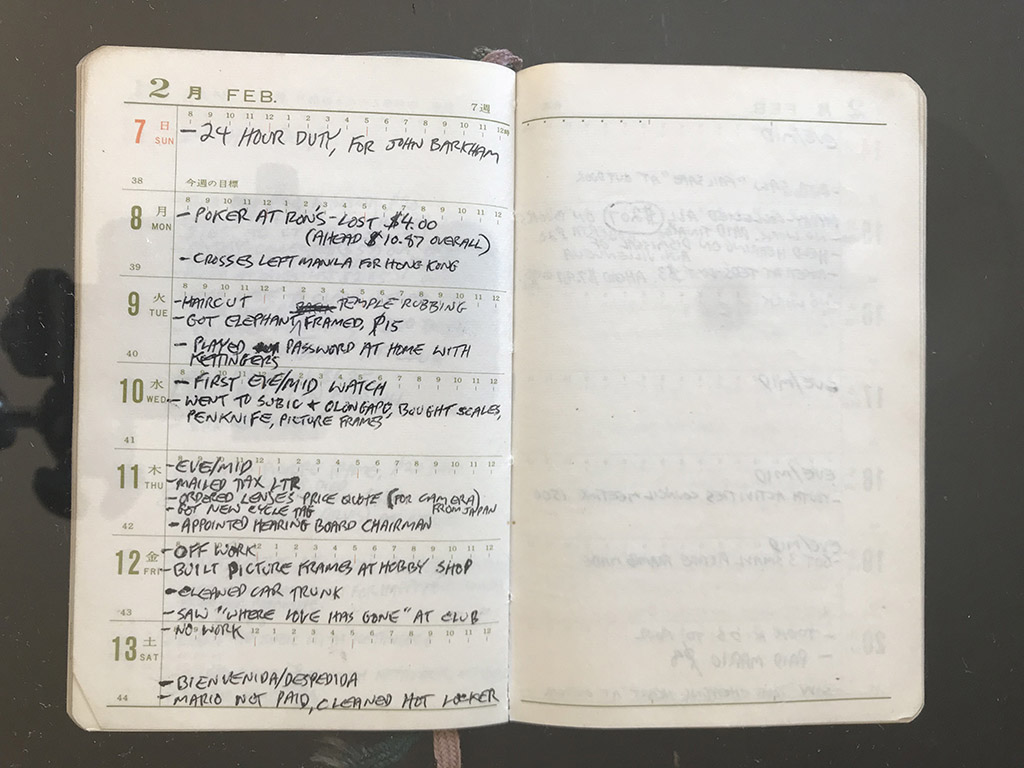 2 月 FEB.
7週
8 9 10 11 12 1 2 3 4 5 6 7 8 9 10 11 12時
7 日 SUN
- 24 HOUR DUTY, FOR JOHN BARKHAM
38 今週の目標
8 9 10 11 12 1 2 3 4 5 6 7 8 9 10 11 12
8 月 MON
- POKER AT RON'S - LOST $4.00
(AHEAD $10.87 OVERALL)
- CROSSES LEFT MANILA FOR HONG KONG
39
8 9 10 11 12 1 2 3 4 5 6 7 8 9 10 11 12
9 火 TUE
- HAIRCUT TEMPLE RUBBING
- GOT ELEPHANT FRAMED, ₱15
- PLAYED PASSWORD AT HOME WITH
KETTINGERS
40
8 9 10 11 12 1 2 3 4 5 6 7 8 9 10 11 12
10 水 WED
- FIRST EVE/MID WATCH
- WENT TO SUBIC + OLONGAPO, BOUGHT SCALES,
PENKNIFE, PICTURE FRAMES
41
8 9 10 11 12 1 2 3 4 5 6 7 8 9 10 11 12
11 木 THU
- EVE/MID
- MAILED TAX LTR
- ORDERED LENSES PRICE QUOTE (FOR CAMERA)
FROM JAPAN
- GOT NEW CYCLE TAG
- APPOINTED HEARING BOARD CHAIRMAN
42
8 9 10 11 12 1 2 3 4 5 6 7 8 9 10 11 12
12 金 FRI
- OFF WORK
- BUILT PICTURE FRAMES AT HOBBY SHOP
- CLEANED CAR TRUNK
- SAW "WHERE LOVE HAS GONE" AT CLUB
43
8 9 10 11 12 1 2 3 4 5 6 7 8 9 10 11 12
13 土 SAT
- NO WORK
- BIENVENIDA/DESPEDIDA
- MARIO NOT PAID, CLEANED HOT LOCKER
44